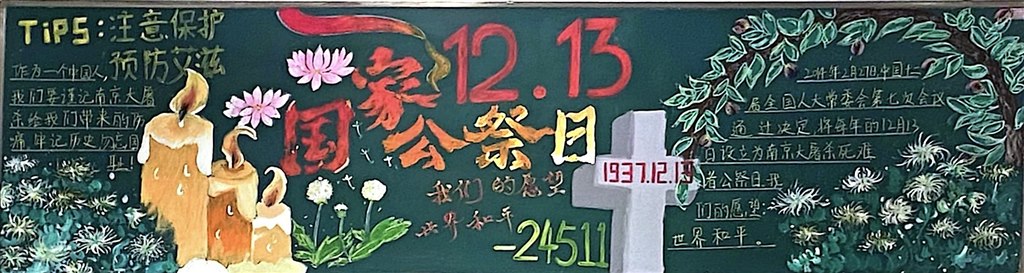 TiPS:注意保护
预防艾滋
作为一个中国人,
我们要谨记南京大屠
杀给我们带来的伤
痛牢记历史勿忘国
耻!
12.13
国家公祭日
我们的愿望
世界和平
-24511
1937.12.13
2014年2月27日,中国十二
届全国人大常委会第七次会议
通过决定,将每年的12月13
日设立为南京大屠杀死难
者公祭日我
们的愿望:
世界和平。